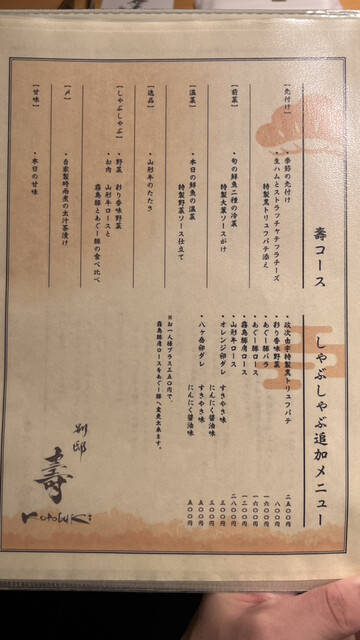 壽コース
【先付け】
・季節の先付け
・生ハムとストラッチャテッラチーズ
特製黒トリュフパテ添え
【前菜】
・旬の鮮魚二種の冷菜
特製大葉ソースがけ
【温菜】
・本日の鮮魚の温菜
特製野菜ソース仕立て
【逸品】
・山形牛のたたき
【しゃぶしゃぶ】
・野菜 彩り香味野菜
・お肉 山形牛ロースと
霧島豚とあぐー豚の食べ比べ
【〆】
・自家製時雨煮の出汁茶漬け
【甘味】
・本日の甘味
しゃぶしゃぶ追加メニュー
特製黒トリュフパテ 二五〇〇円
・彩り香味野菜 八〇〇円
・あぐー豚バラ 一六〇〇円
・あぐー豚ロース 一六〇〇円
・霧島豚肩ロース 一三〇〇円
・山形牛ロース 二八〇〇円
・オレンジ卵ダレ すきやき味 三〇〇円
にんにく醤油味 三〇〇円
・八ヶ岳卵ダレ すきやき味 五〇〇円
にんにく醤油味 五〇〇円
※お一人様プラス三五〇円で、
霧島豚肩ロースをあぐー豚へ変更出来ます。
別邸
壽
KOTOBUKI